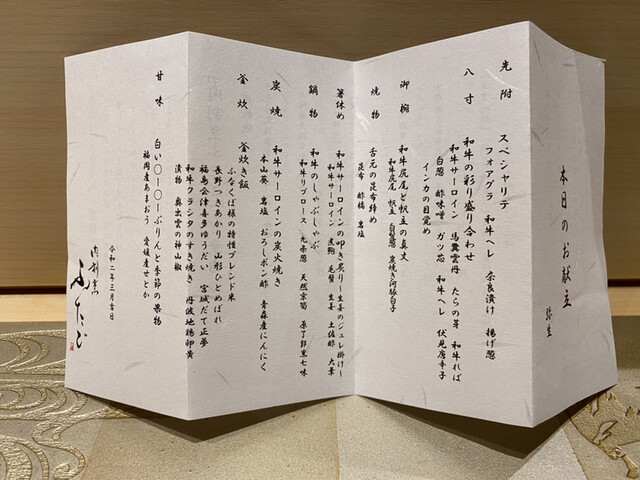 本日のお献立
弥生
先附
スペシャリテ
フォアグラ 和牛ヘレ 奈良漬け 揚げ葱
八寸
和牛の彩り盛り合わせ
和牛サーロイン 馬糞雲丹 たらの芽 和牛れば
白葱 酢味噌 ガツ芯 和牛ヘレ 伏見唐辛子
インカの目覚め
御椀
和牛尻尾と帆立の真丈
和牛尻尾 帆立 白髪葱 炭焼き河豚白子
焼物
舌元の昆布締め
昆布 酢橘 岩塩
箸休め
和牛サーロインの叩き炙り~生姜のジュレ掛け~
和牛サーロイン 煮鮑 毛蟹 生姜 土佐酢 大葉
鍋物
和牛のしゃぶしゃぶ
和牛リブロース 九条葱 天然京筍 原了郭黒七味
炭焼
和牛サーロインの炭火焼き
本山葵 岩塩 おろしポン酢 青森産にんにく
釜炊
釜炊き飯
ふなくぼ様の特性ブレンド米
長野つきあかり 山形ひとめぼれ
福島会津喜多ゆうだい 宮城だて正夢
和牛クラシタのすき焼き 丹波地鶏卵黄
漬物 奥出雲の神山椒
甘味
白い〇ー〇ーぷりんと季節の果物
福岡産あまおう 愛媛産せとか
令和二年三月吉日
肉割烹
ふたご